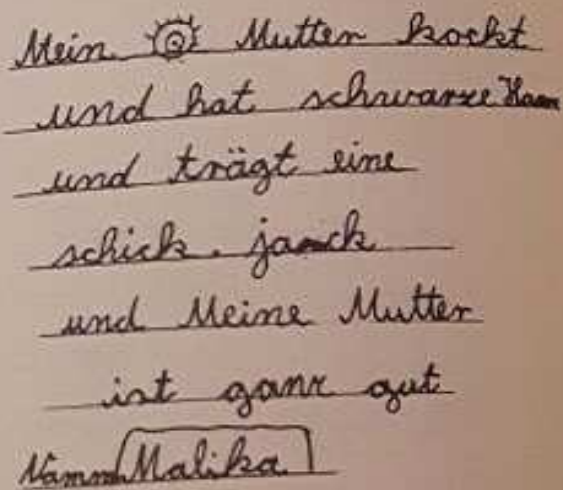 Mein Mutter kockt
und hat schwarze Haar
und trägt eine
schick. jamck
und Meine Mutter
ist ganz gut
Namm Malika